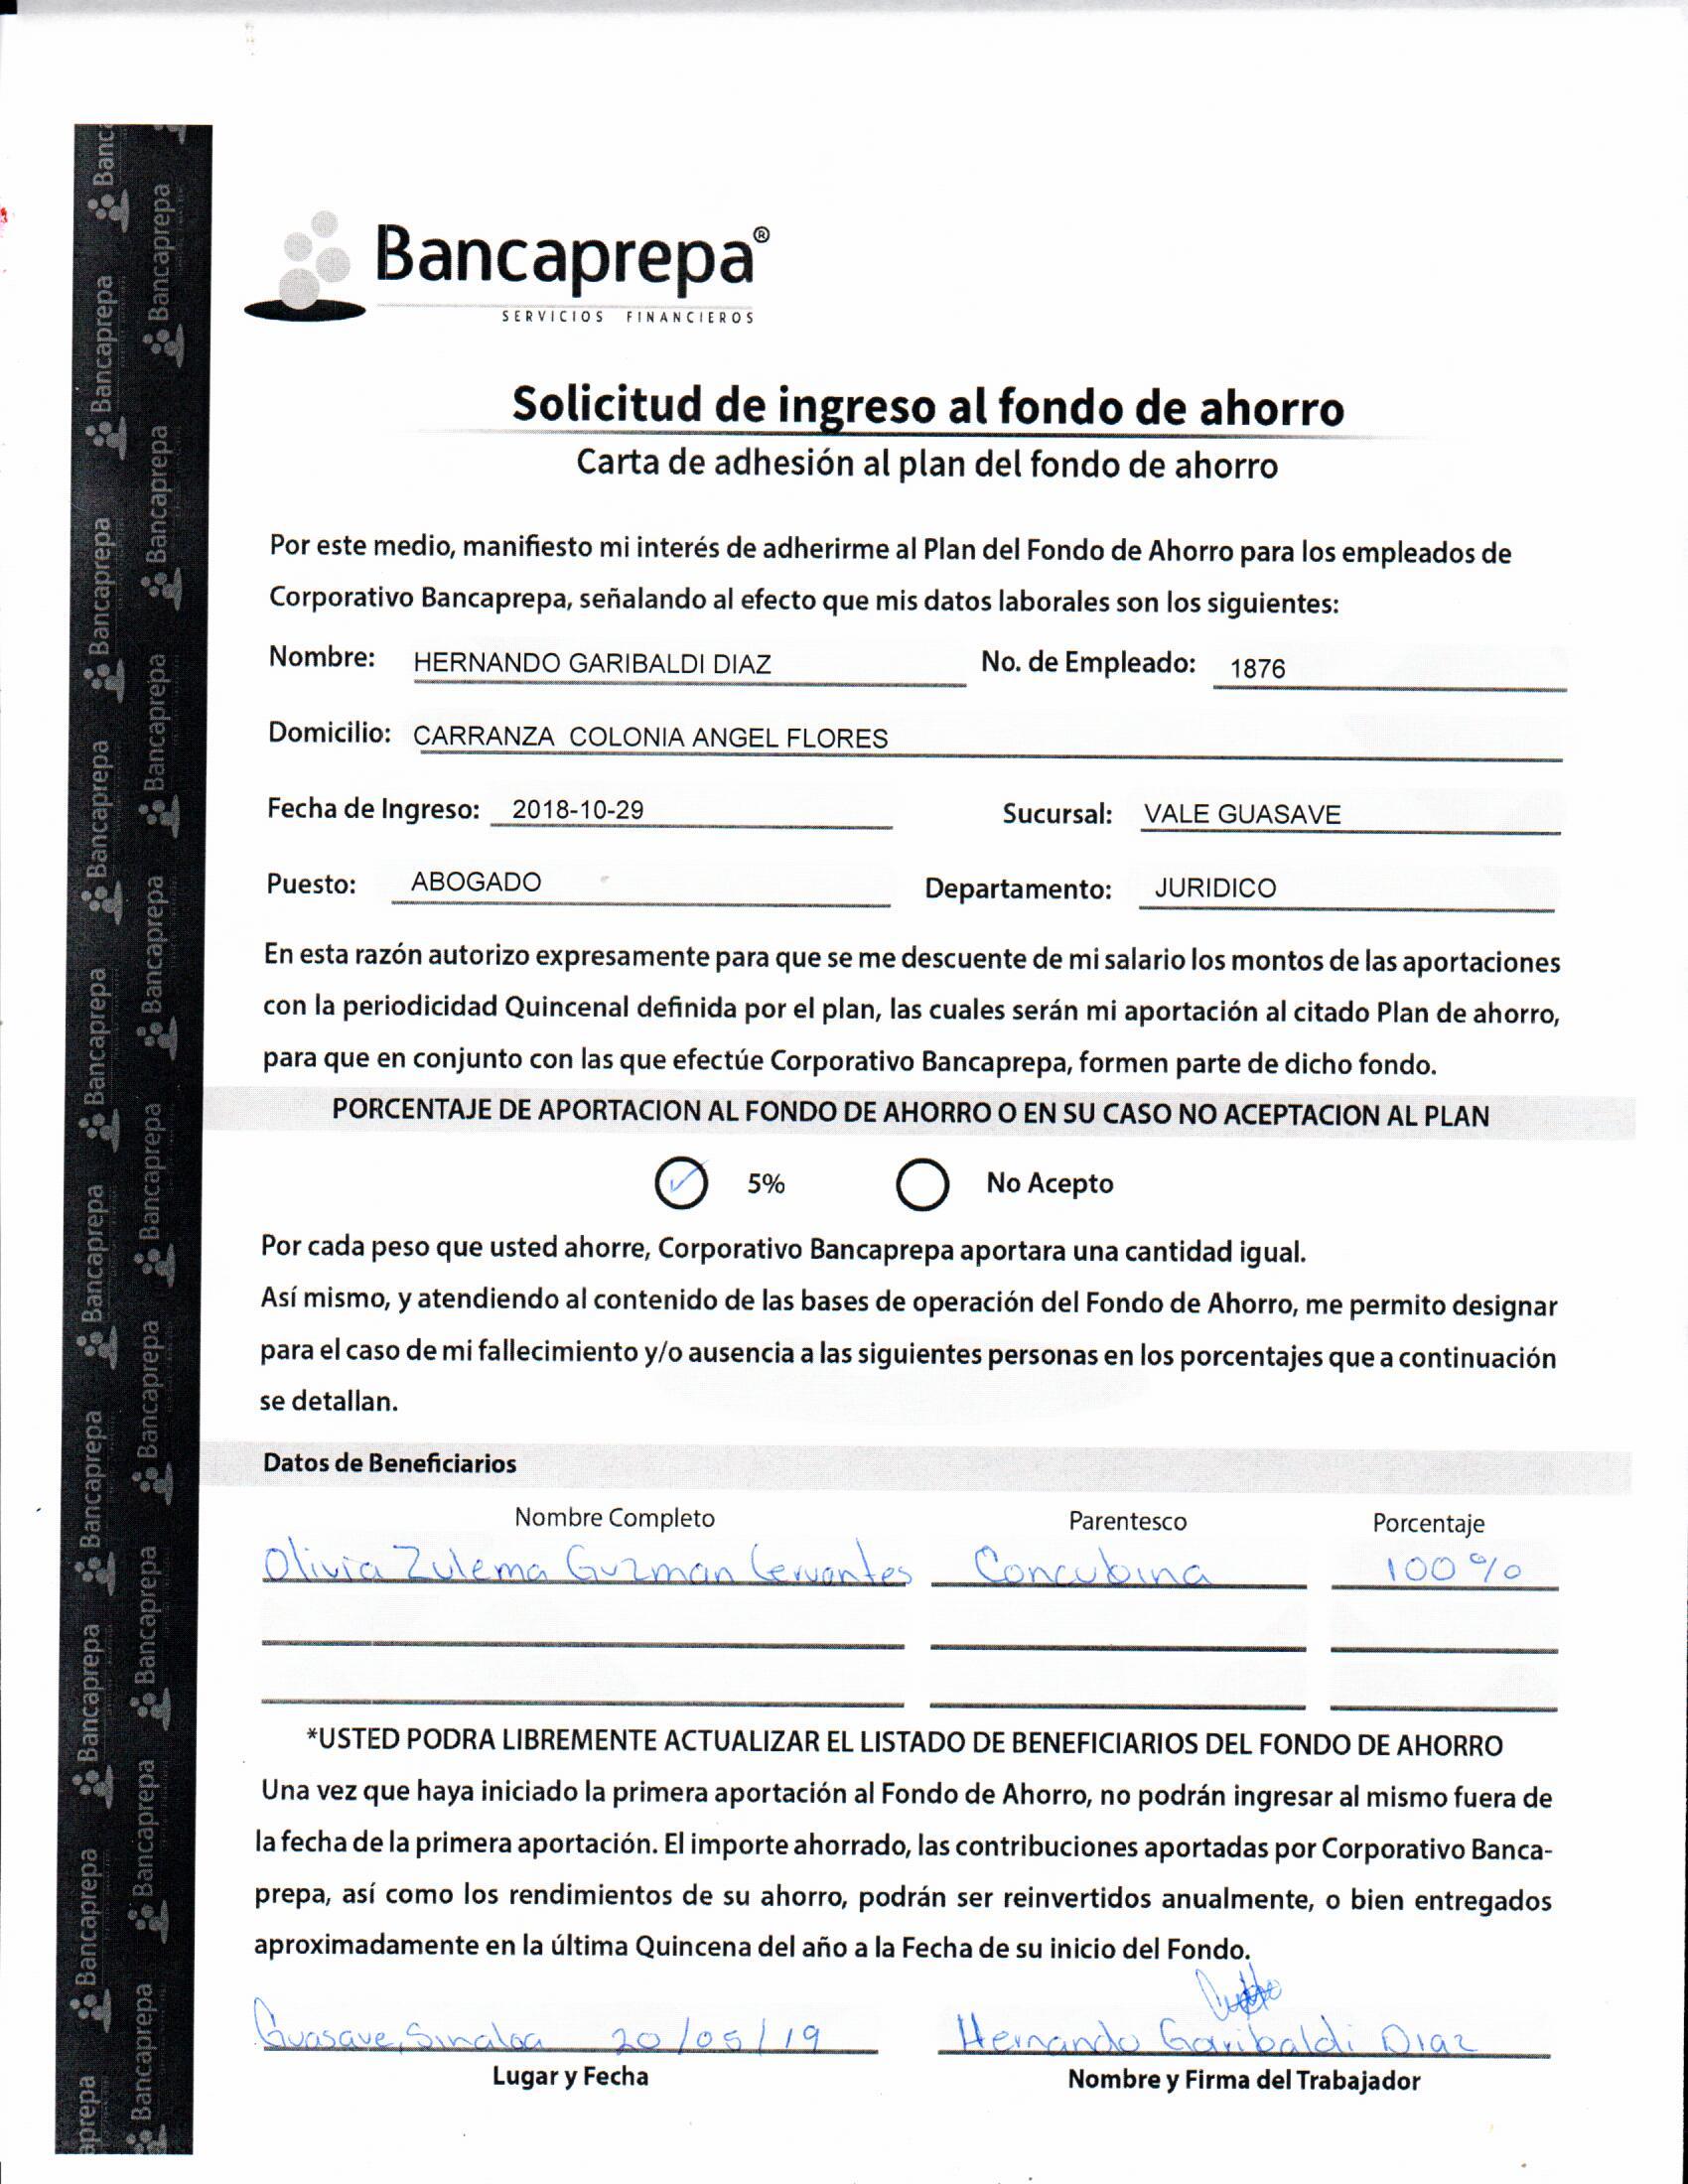 Bancaprepa®
SERVICIOS FINANCIEROS
Solicitud de ingreso al fondo de ahorro
Carta de adhesión al plan del fondo de ahorro
Por este medio, manifiesto mi interés de adherirme al Plan del Fondo de Ahorro para los empleados de
Corporativo Bancaprepa, señalando al efecto que mis datos laborales son los siguientes:
Nombre: HERNANDO GARIBALDI DIAZ No. de Empleado: 1876
Domicilio: CARRANZA COLONIA ANGEL FLORES
Fecha de Ingreso: 2018-10-29 Sucursal: VALE GUASAVE
Puesto: ABOGADO Departamento: JURIDICO
En esta razón autorizo expresamente para que se me descuente de mi salario los montos de las aportaciones
con la periodicidad Quincenal definida por el plan, las cuales serán mi aportación al citado Plan de ahorro,
para que en conjunto con las que efectúe Corporativo Bancaprepa, formen parte de dicho fondo.
PORCENTAJE DE APORTACION AL FONDO DE AHORRO O EN SU CASO NO ACEPTACION AL PLAN
5% No Acepto
Por cada peso que usted ahorre, Corporativo Bancaprepa aportara una cantidad igual.
Así mismo, y atendiendo al contenido de las bases de operación del Fondo de Ahorro, me permito designar
para el caso de mi fallecimiento y/o ausencia a las siguientes personas en los porcentajes que a continuación
se detallan.
Datos de Beneficiarios
Nombre Completo Parentesco Porcentaje
Olivia Zulema Guzman Cervantes Concubina 100%
*USTED PODRA LIBREMENTE ACTUALIZAR EL LISTADO DE BENEFICIARIOS DEL FONDO DE AHORRO
Una vez que haya iniciado la primera aportación al Fondo de Ahorro, no podrán ingresar al mismo fuera de
la fecha de la primera aportación. El importe ahorrado, las contribuciones aportadas por Corporativo Banca-
prepa, así como los rendimientos de su ahorro, podrán ser reinvertidos anualmente, o bien entregados
aproximadamente en la última Quincena del año a la Fecha de su inicio del Fondo.
Guasave, Sinaloa 20/05/19 Hernando Garibaldi Diaz
Lugar y Fecha Nombre y Firma del Trabajador